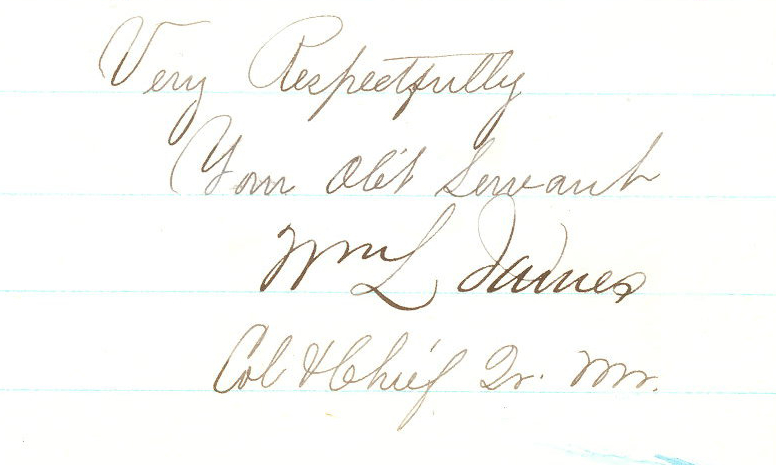 Very Respectfully
Your Obt Servant
Wm L James
Col & Chief Qr. Mr.